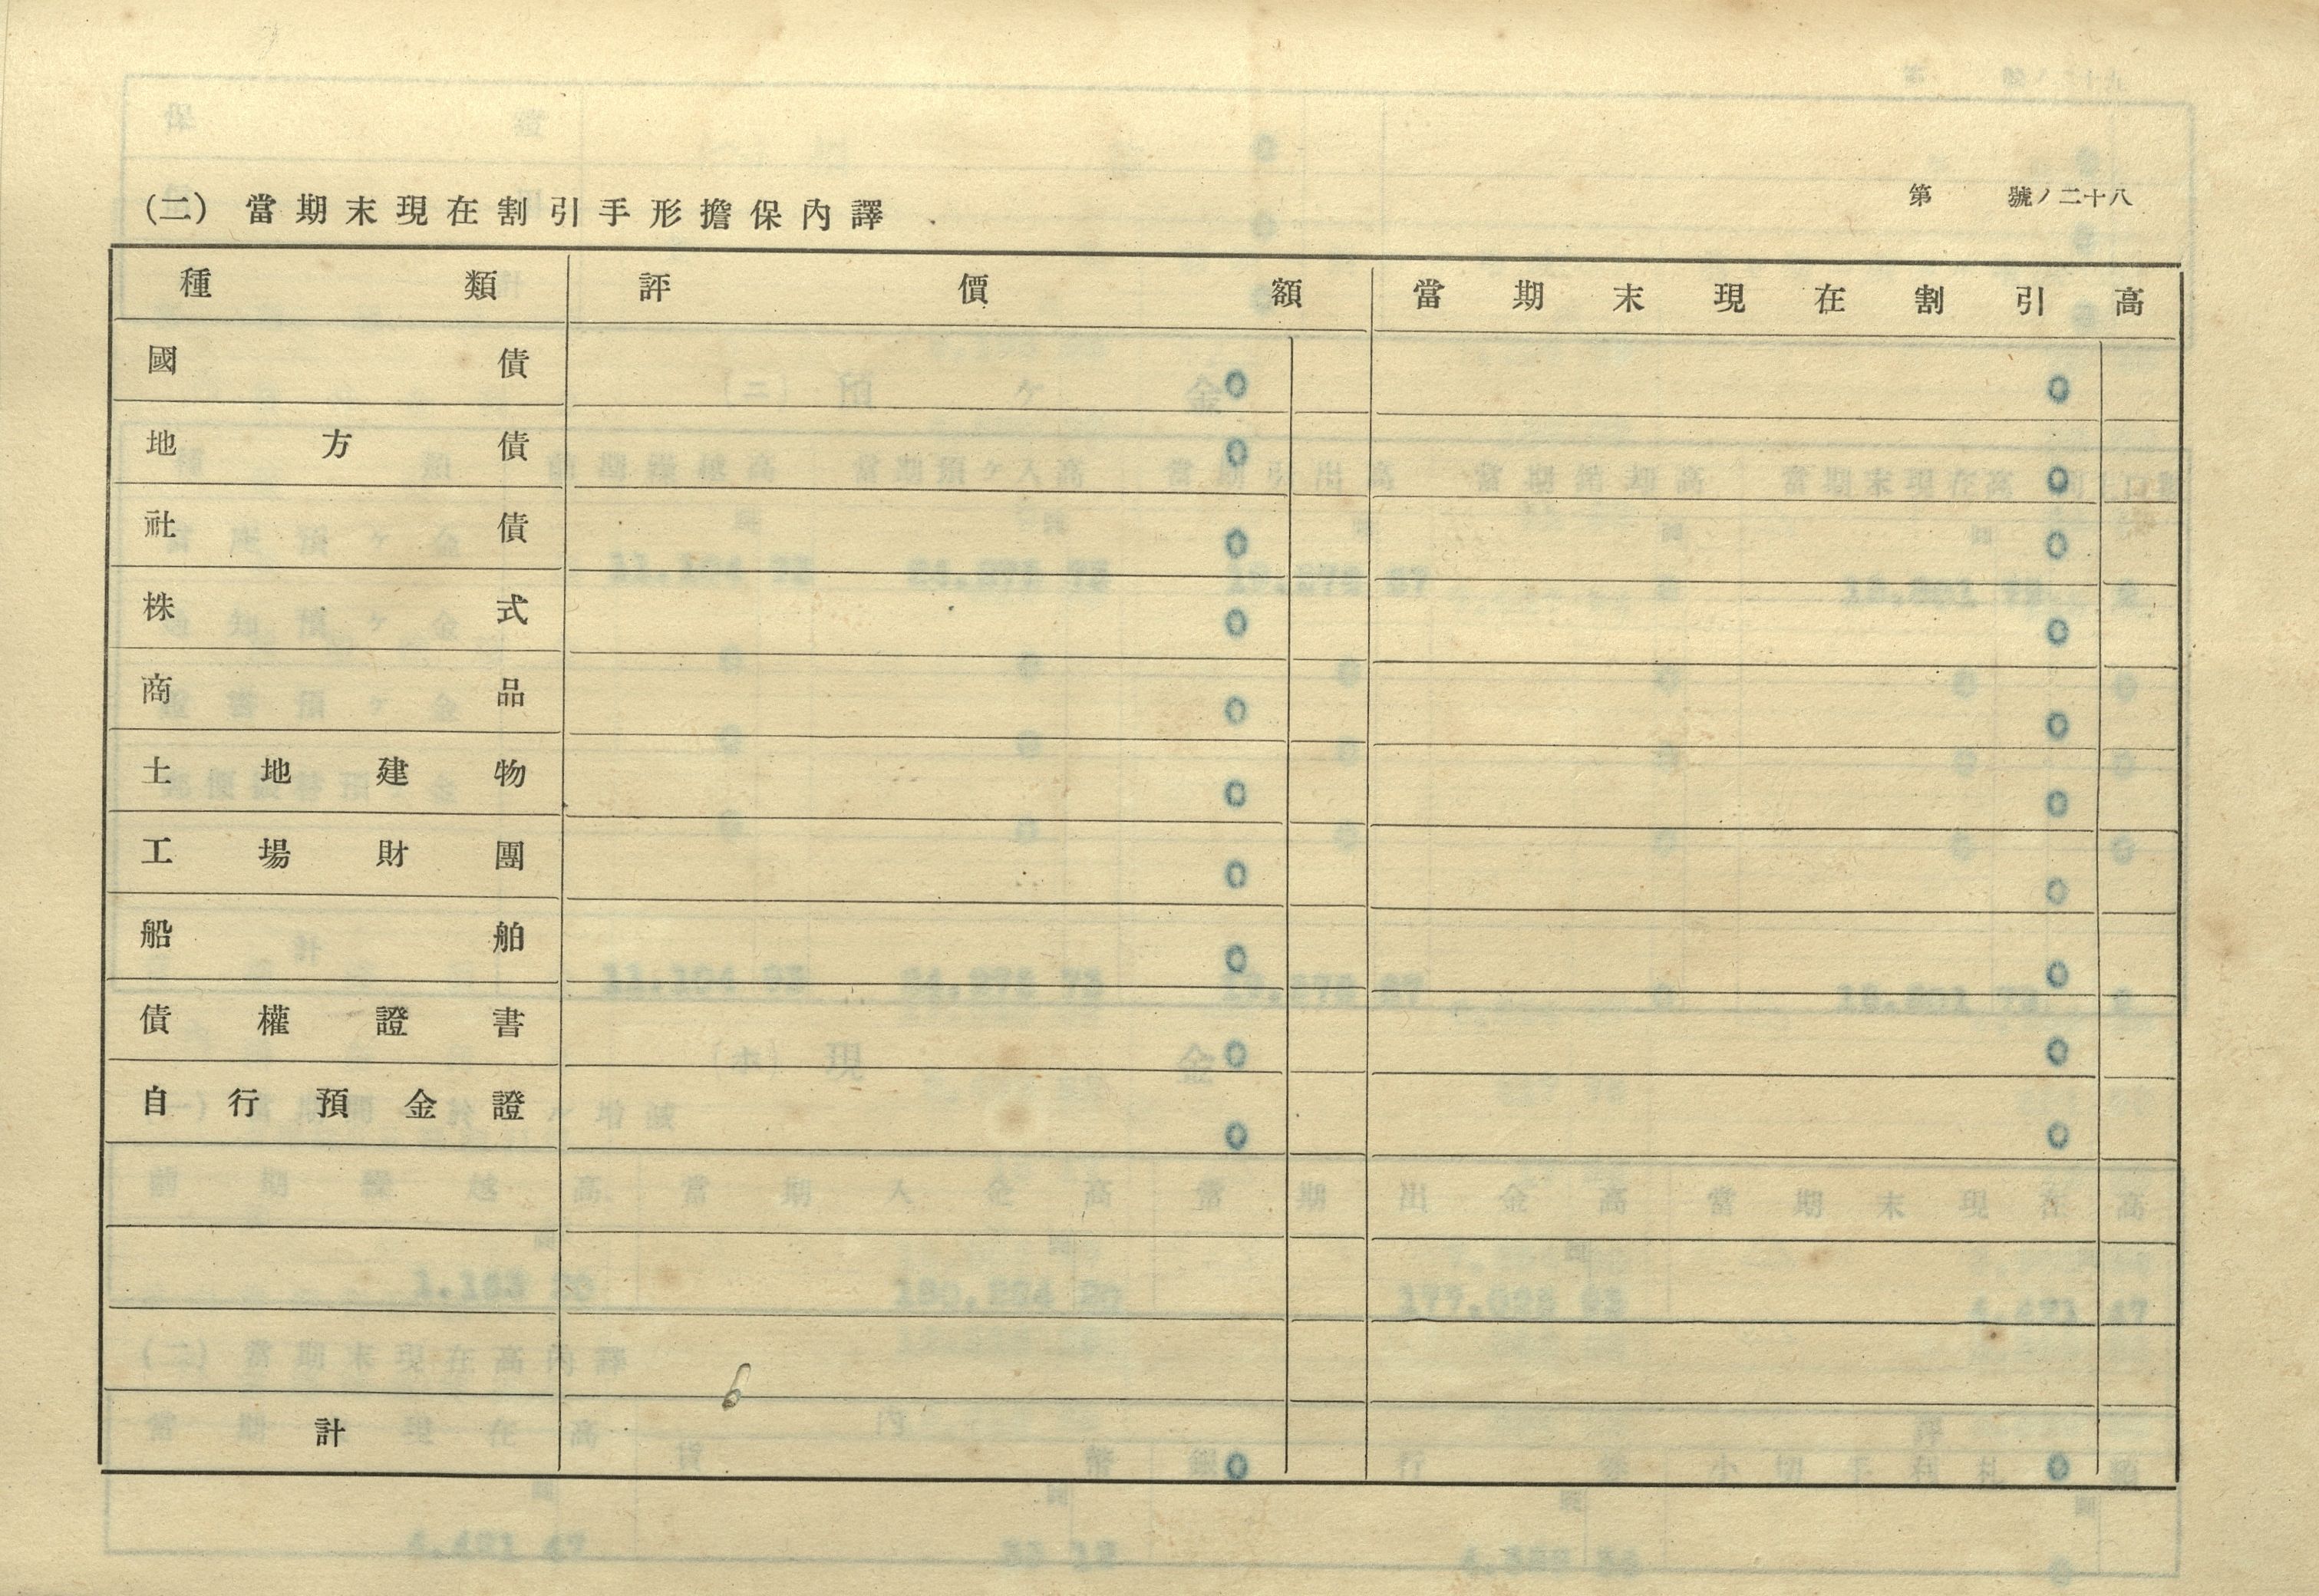 第　號ノ二十八
(二) 當期末現在割引手形擔保內譯
種類 評價額 當期末現在割引高
國債 0 0
地方債 0 0
社債 0 0
株式 0 0
商品 0 0
土地建物 0 0
工場財團 0 0
船舶 0 0
債權證書 0 0
自行預金證 0 0
計 0 0